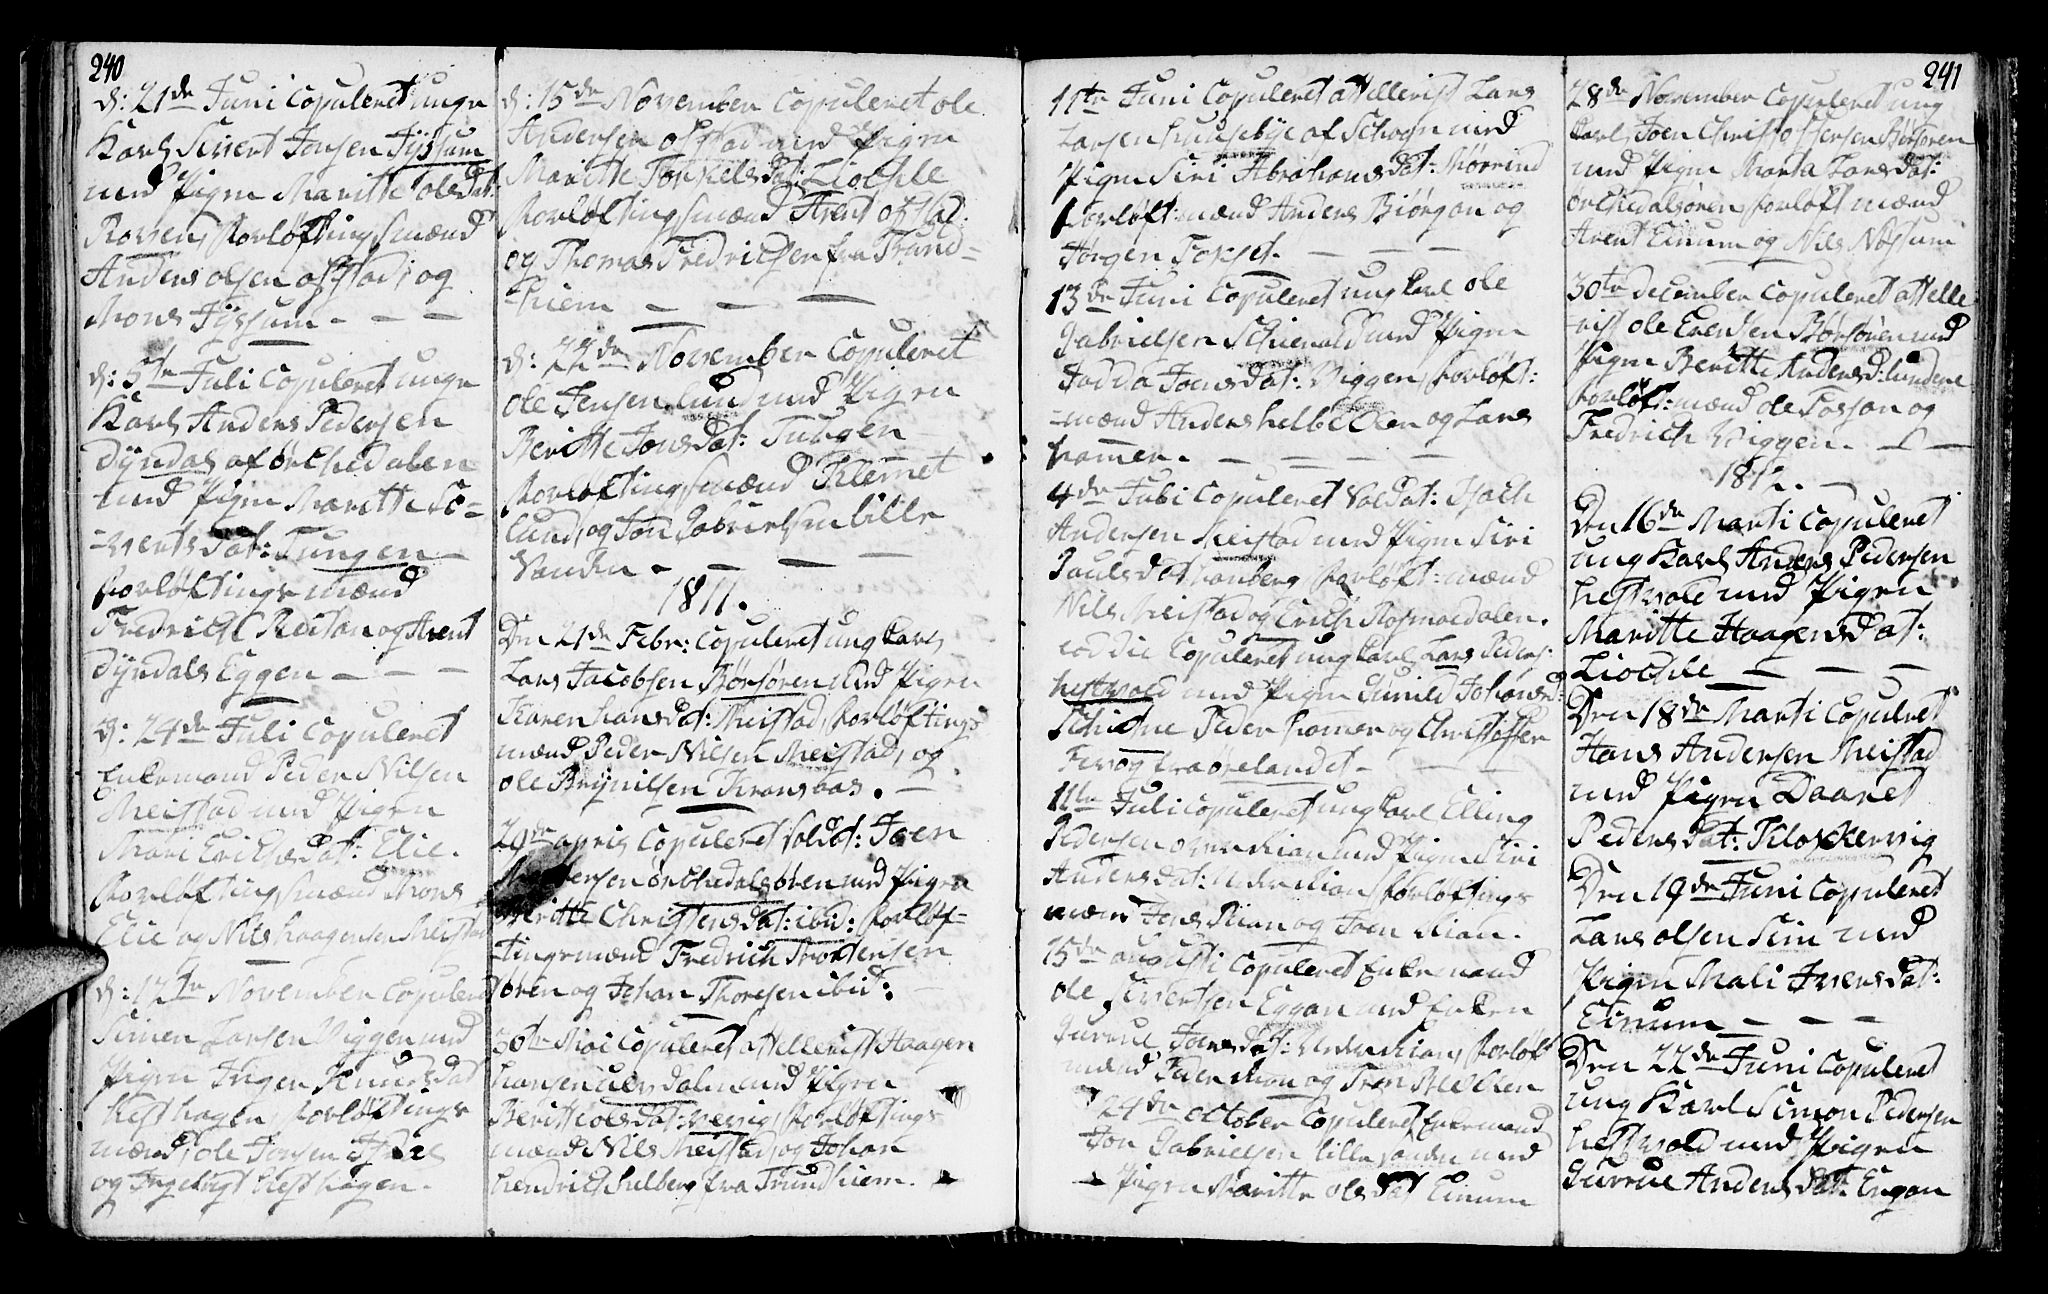 240
d: 21de Juni Copuleret unge
Karl Sivert Jonsen Tÿssum
med Pigen Maritte olsdat:
Roven, Forløftingsmænd
Anders olsen ofstad, og
Mons Tÿssum
d: 5te Juli Copuleret unge
Karl Anders Pedersen
Dÿndal af ørchedalen
med Pigen Maritte Si-
-vertsdat: Tungen
forløftings mænd
Fredrich Reitan og Arent
Dÿndals Eggen
d: 24de Juli Copuleret
Enkemand Peder Nilsen
Meistad med Pigen
Mari Erichsdat: Elie.
Forløftingsmænd Mons
Elie og Nils Haagensen Meistad
d: 12te November Copuleret
Simen Larsen Viggen med
Pigen Ingen Knudsdat
Hesthagen, forløftings
mænd, ole Jonsen
og Ingebrigt Hesthagen.
d: 15de November Copuleret ole
Andersen ofstad med Pigen
Maritte Torkelsdat: Liochle
Forløftingsmænd Arent ofstad:
og Thomas Fredrichsen fra Trund-
-hiem
d: 22de November Copuleret
ole Jensen Lund med Pigen
Beritte Jonsdat: Tungen
Forløftingsmænd Klemet
Lund, og Jon Gabrielsen lille
Vanden
1811.
Den 21de Febr: Copuleret ung karl
Lars Jacobsen Børsøren med Pigen
Karen Hansdat: Meistad, forløftings
mænd Peder Nilsen Meistad, og
ole Brÿnilsen Kransaas.
29de april Copuleret Soldat: Joen
ørchedalsøren med Pigen
Beritte Christensdat: ibid: forløf-
-tingsmænd Fredrich Mortensen
øren og Johan Thoresen ibid:
30te Mai Copuleret attellerist Haagen
Hansen Ulsdalen med Pigen
Beritte olsdat: Vevig, forløftings
mænd Nils Meistad, og Johan
Hendrich Sulberg fra Trundhiem.
241
11te Juni Copuleret attellerist Lars
Larsen Huusebÿe af Schogn med
Pigen Siri Abrahamsdat: Mørrind
Forløft: mænd Anders Biørgan og
Jørgen Torset.
13de Juni Copuleret ung karl ole
Gabrielsen Schierald med Pigen
Jodda Joensdat: Viggen, forløft:
-mænd Anders Helbechen og Lars
Hammer.
4de Juli Copuleret Soldat: Isach
Andersen Meistad med Pigen Siri
Paulsdat Hanberg, forløft: mænd
Nils Meistad og Erich Rosmoedalen.
eoddie Copuleret ung karl Lars Peders:
Hestvold med Pigen Gunild Johansd:
Schidne Peder Hamer og Christoffer
Ferøy fra ørelandet
11te Juli Copuleret ung karl Elling
Pedersen over Rian med Pigen Siri
Andersdat: Neder Rian, forløftings
mænd Jens Rian og Joen Rian.
15de augusti Copuleret Enkemand
ole Sivertsen Eggan med Enken
Gurrue Joensdat: Neder Rian, forløft
mænd Peder Moan og Iver Melchen
24de october Copuleret Enkemand
Jon Gabrielsen lille Vanden med
Pigen Maritte olsdat Einum
28de November Copuleret ung
karl Joen Christoffersen Børsøren
med Pigen Marta Larsdat:
ørchedalsøren, forløft mænd
Arent Einum og Nils Nossum
30te December Copuleret attelle
-rist ole Evensen Børsøren med
Pigen Beritte Andersd: Lundene
forløft: mænd ole Possan og
Fredrich Viggen.
1812.
Den 16de Marti Copuleret
ung Karl Anders Pedersen
Hestvold med Pigen
Maritte Haagensdat:
Liochle
Den 18de Marti Copuleret
Hans Andersen Meistad
med Pigen Daaret
Pedersdat: Klockervig
Den 19de Juni Copuleret
Lars olsen Sim med
Pigen Mali Iversdat:
Einum
Den 22de Juni Copuleret
ung Karl Simon Pedersen
Hestvold med Pigen
Gurrue Andersdat: Engan